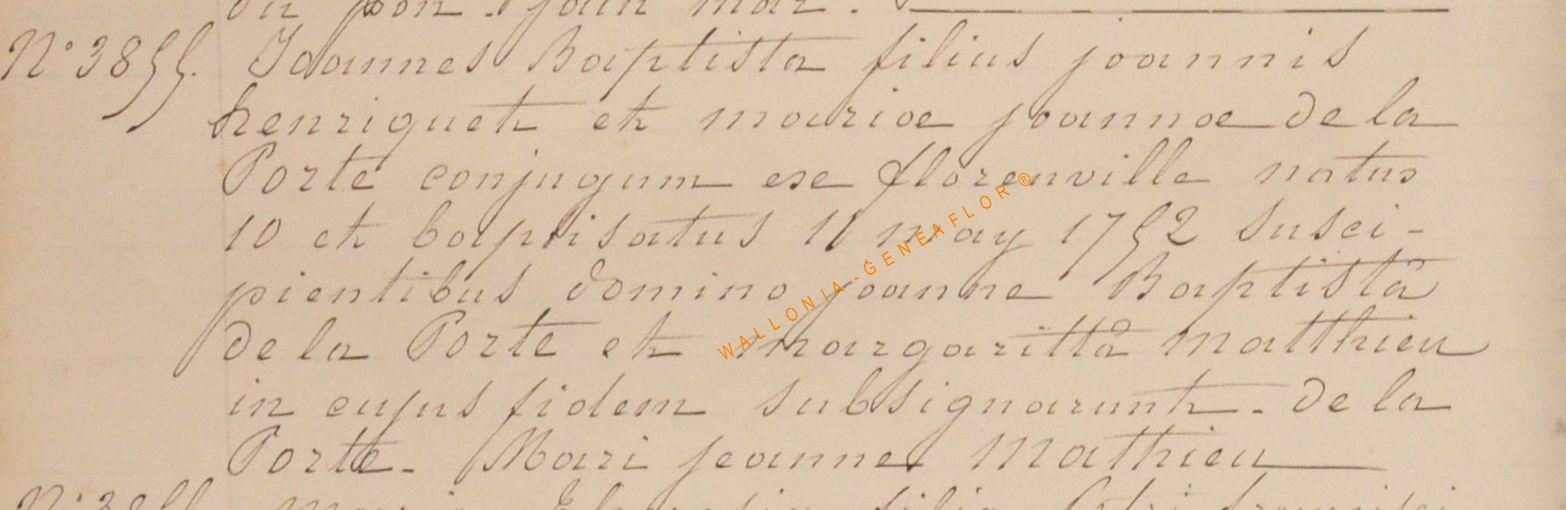 N° 3855. Joannes Baptista filius joannis
henriquet et mariæ joannæ de la
Porte conjugum ex florenville natus
10 et baptisatus 11 may 1752 susci-
pientibus domino joanne Baptistâ
de la Porte et margarittâ matthieu
in cujus fidem subsignarunt. de la
Porte. Mari jeanne Mathieu
WALLONIA-GENEAFLOR®